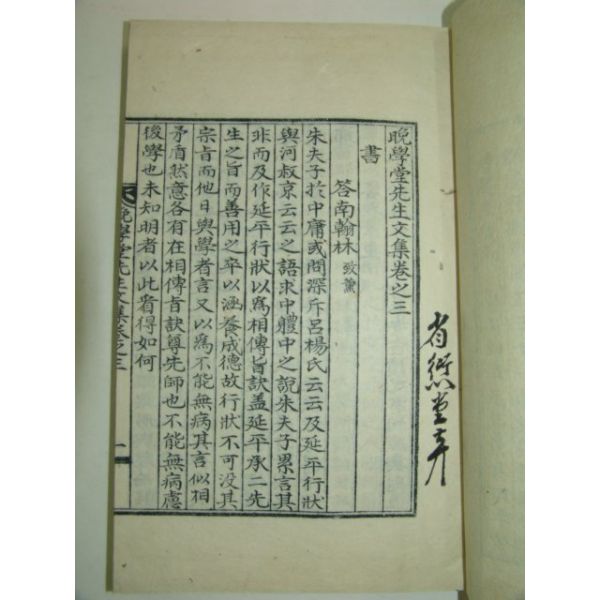 晩學堂先生文集卷之三
書
答南翰林 致薰
朱夫子於中庸或問深斥呂楊氏云云及延平行狀
與河叔京云云之語求中軆中之說朱夫子累言其
非而及作延平行狀以爲相傳旨訣盖延平承二先
生之旨而善用之卒以涵養成德故行狀不可没其
宗旨而他日與學者言又以爲不能無病其言似相
矛盾然意各有在相傳旨訣尊先師也不能無病慮
後學也未知明者以此看得如何
晩學堂先生文集卷之三
一